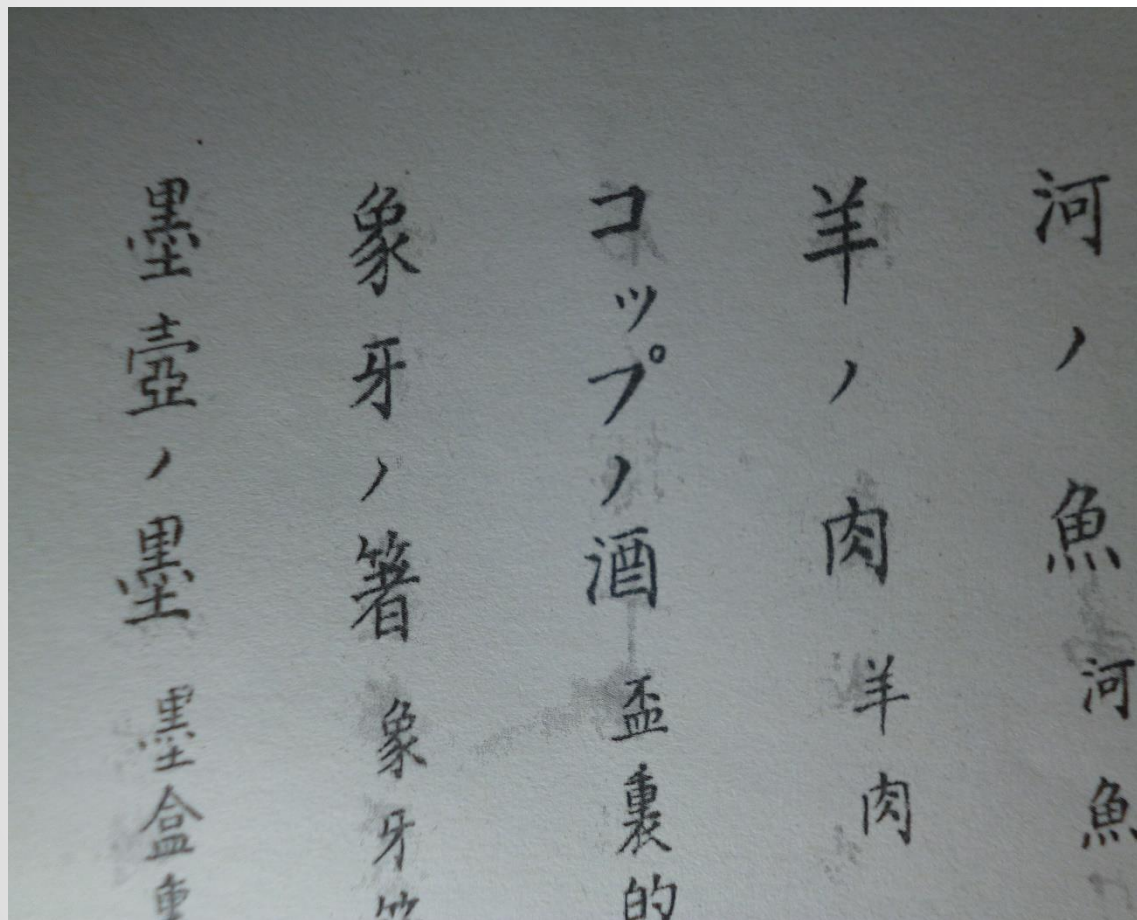 河ノ魚 河魚
羊ノ肉 羊肉
コップノ酒 盃裏的
象牙ノ箸 象牙
墨壺ノ墨 墨盒